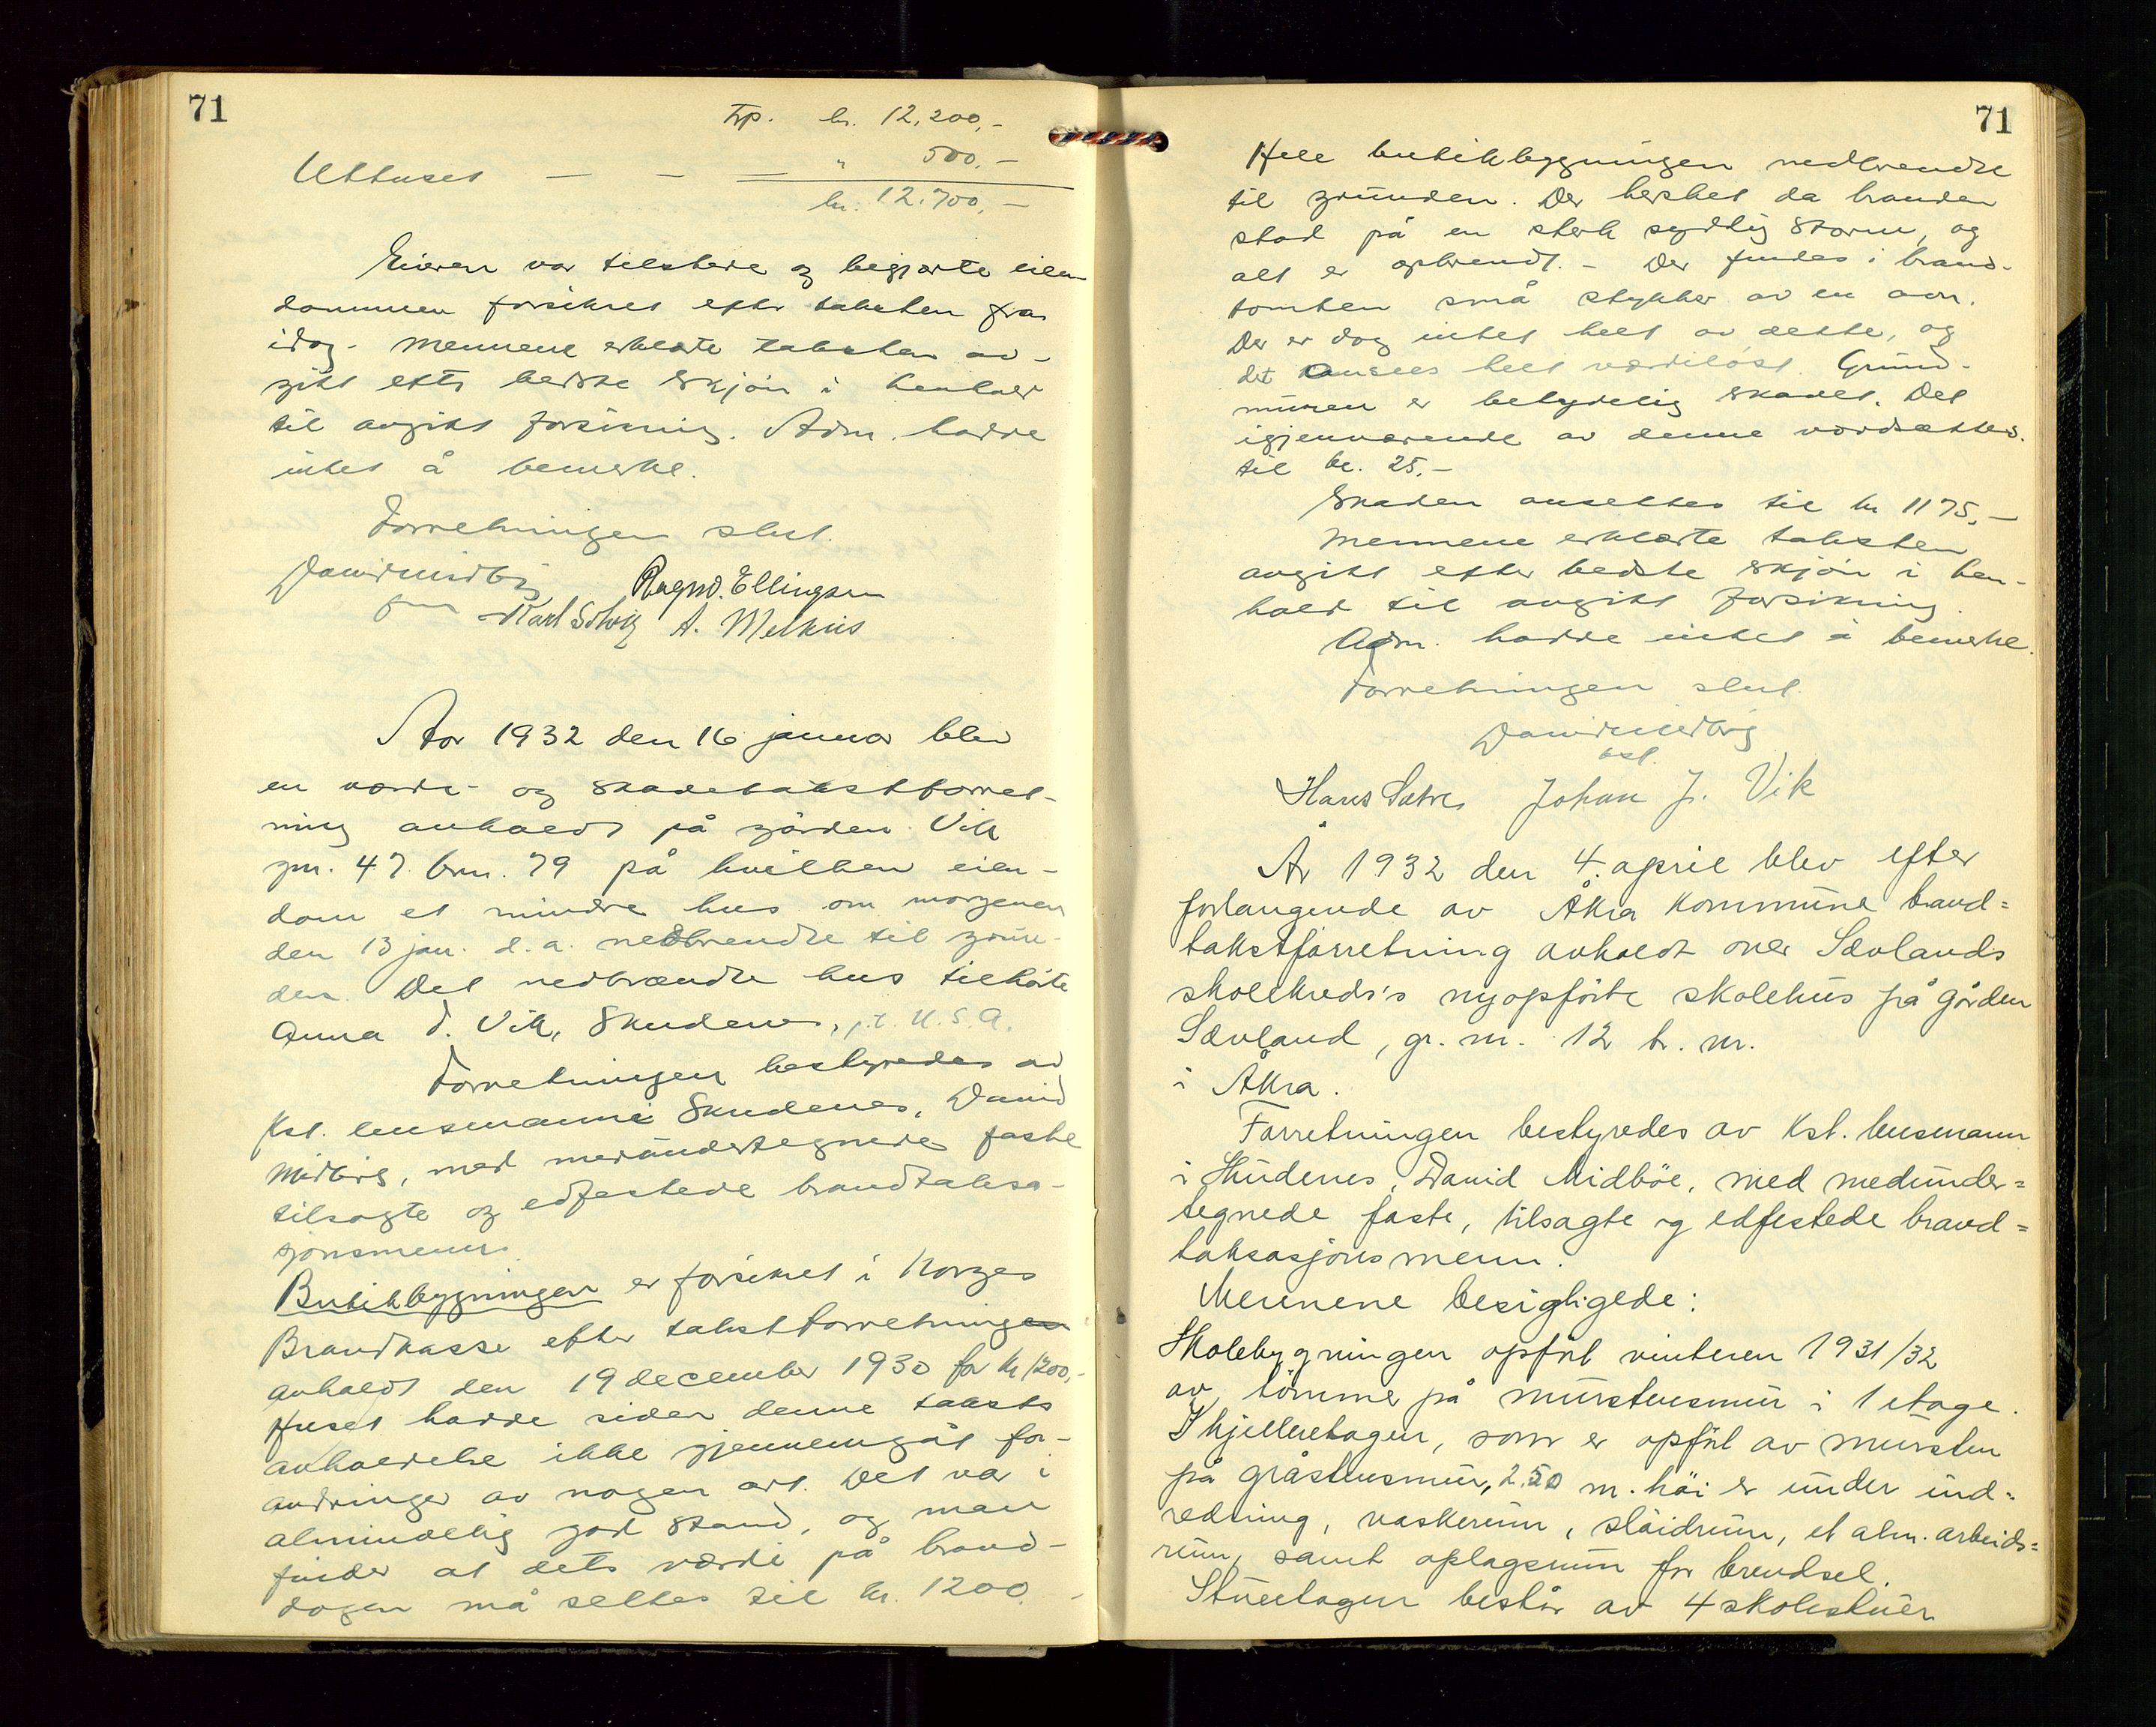 71
Trp. kr. 12.200,-
Uthuset — — " 500,-
kr. 12.700,-
Eieren var tilstede og begjærte eien
dommen forsikret efter taksten fra
idag. Mennene erklærte taksten av-
gitt efter bedste skjön i henhold
til avgitt forsikring. Adm. hadde
intet å bemerke.
Forretningen slut.
David Midbög Ragnv. Ellingsen
Karl Solvig A. Melkris
Aar 1932 den 16 januar blev
en værdi- og skadetakstforret-
ning avholdt på gården Vik
gnr. 47 brn. 79 på hvilken eien-
dom et mindre hus om morgenen
den 13 jan. d.a. nedbrendte til grun-
den. Det nedbrændte hus tilhörte
Anna T. Vik, Skudenes, p.t. U.S.A.
Forretningen bestyredes av
Kst. lensmann i Skudenes, David
Midböe, med medundertegnede faste
tilsagte og edfestede brandtaksa-
sjonsmenn.
Butikbygningen er forsikret i Norges
Brandkasse efter takstforretningen
avholdt den 19 december 1930 for kr 1200,-
Huset hadde siden denne taksts
avholdelse ikke gjennemgåt for-
andringer av nogen art. Det var i
almindelig god stand, og man
finder at dets værdi på brand-
dagen må settes til kr. 1200.-
71
Hele butikbygningen nedbrendte
til grunden. Der hersket da branden
stod på en sterk sydlig storm, og
alt er opbrendt. - Der findes i brand-
tomten små stykker av en ovn.
Der er dog intet helt av dette, og
det ansees helt værdilöst. Grund-
muren er betydelig skadet. Det
igjenværende av denne værdsættes
til kr. 25.-
Skaden ansettes til kr 1175,-
Mennene erklærte taksten
avgitt efter bedste skjön i hen-
hold til avgitt forsikring.
Adm. hadde intet å bemerke.
Forretningen slut.
David Midbög
kst.
Hans Sætre Johan J. Vik
År 1932 den 4. april blev efter
forlangende av Åkra kommune brand=
takstforretning avholdt over Sævlands
skolekreds's nyopförte skolehus på gården
Sævland, gr. nr. 12 br. nr.
i Åkra.
Forretningen bestyredes av Kst. lensmann
i Skudenes, David Midböe, med medunder=
tegnede faste, tilsagte og edfestede brand=
taksasjonsmenn.
Mennene besigtigede:
Skolebygningen opfört vinteren 1931/32
av tömmer på murstensmur i 1 etage.
I kjelleretagen, som er opfört av mursten
på gråstensmur, 2.50 m. höi er under ind=
redning, vaskerum, slöidrum, et alm. arbeids=
rum, samt oplagsrum for brendsel.
Stueetagen består av 4 skolestuer